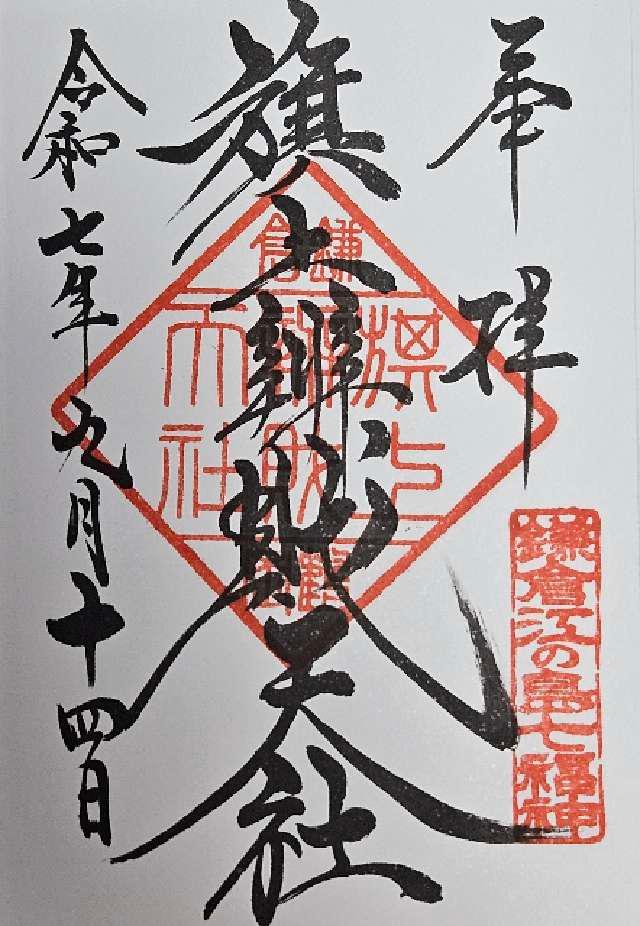 奉拝
鎌倉江の島七福神
旗上辨財天社
鎌倉
旗上
辨財
天社
令和七年九月十四日